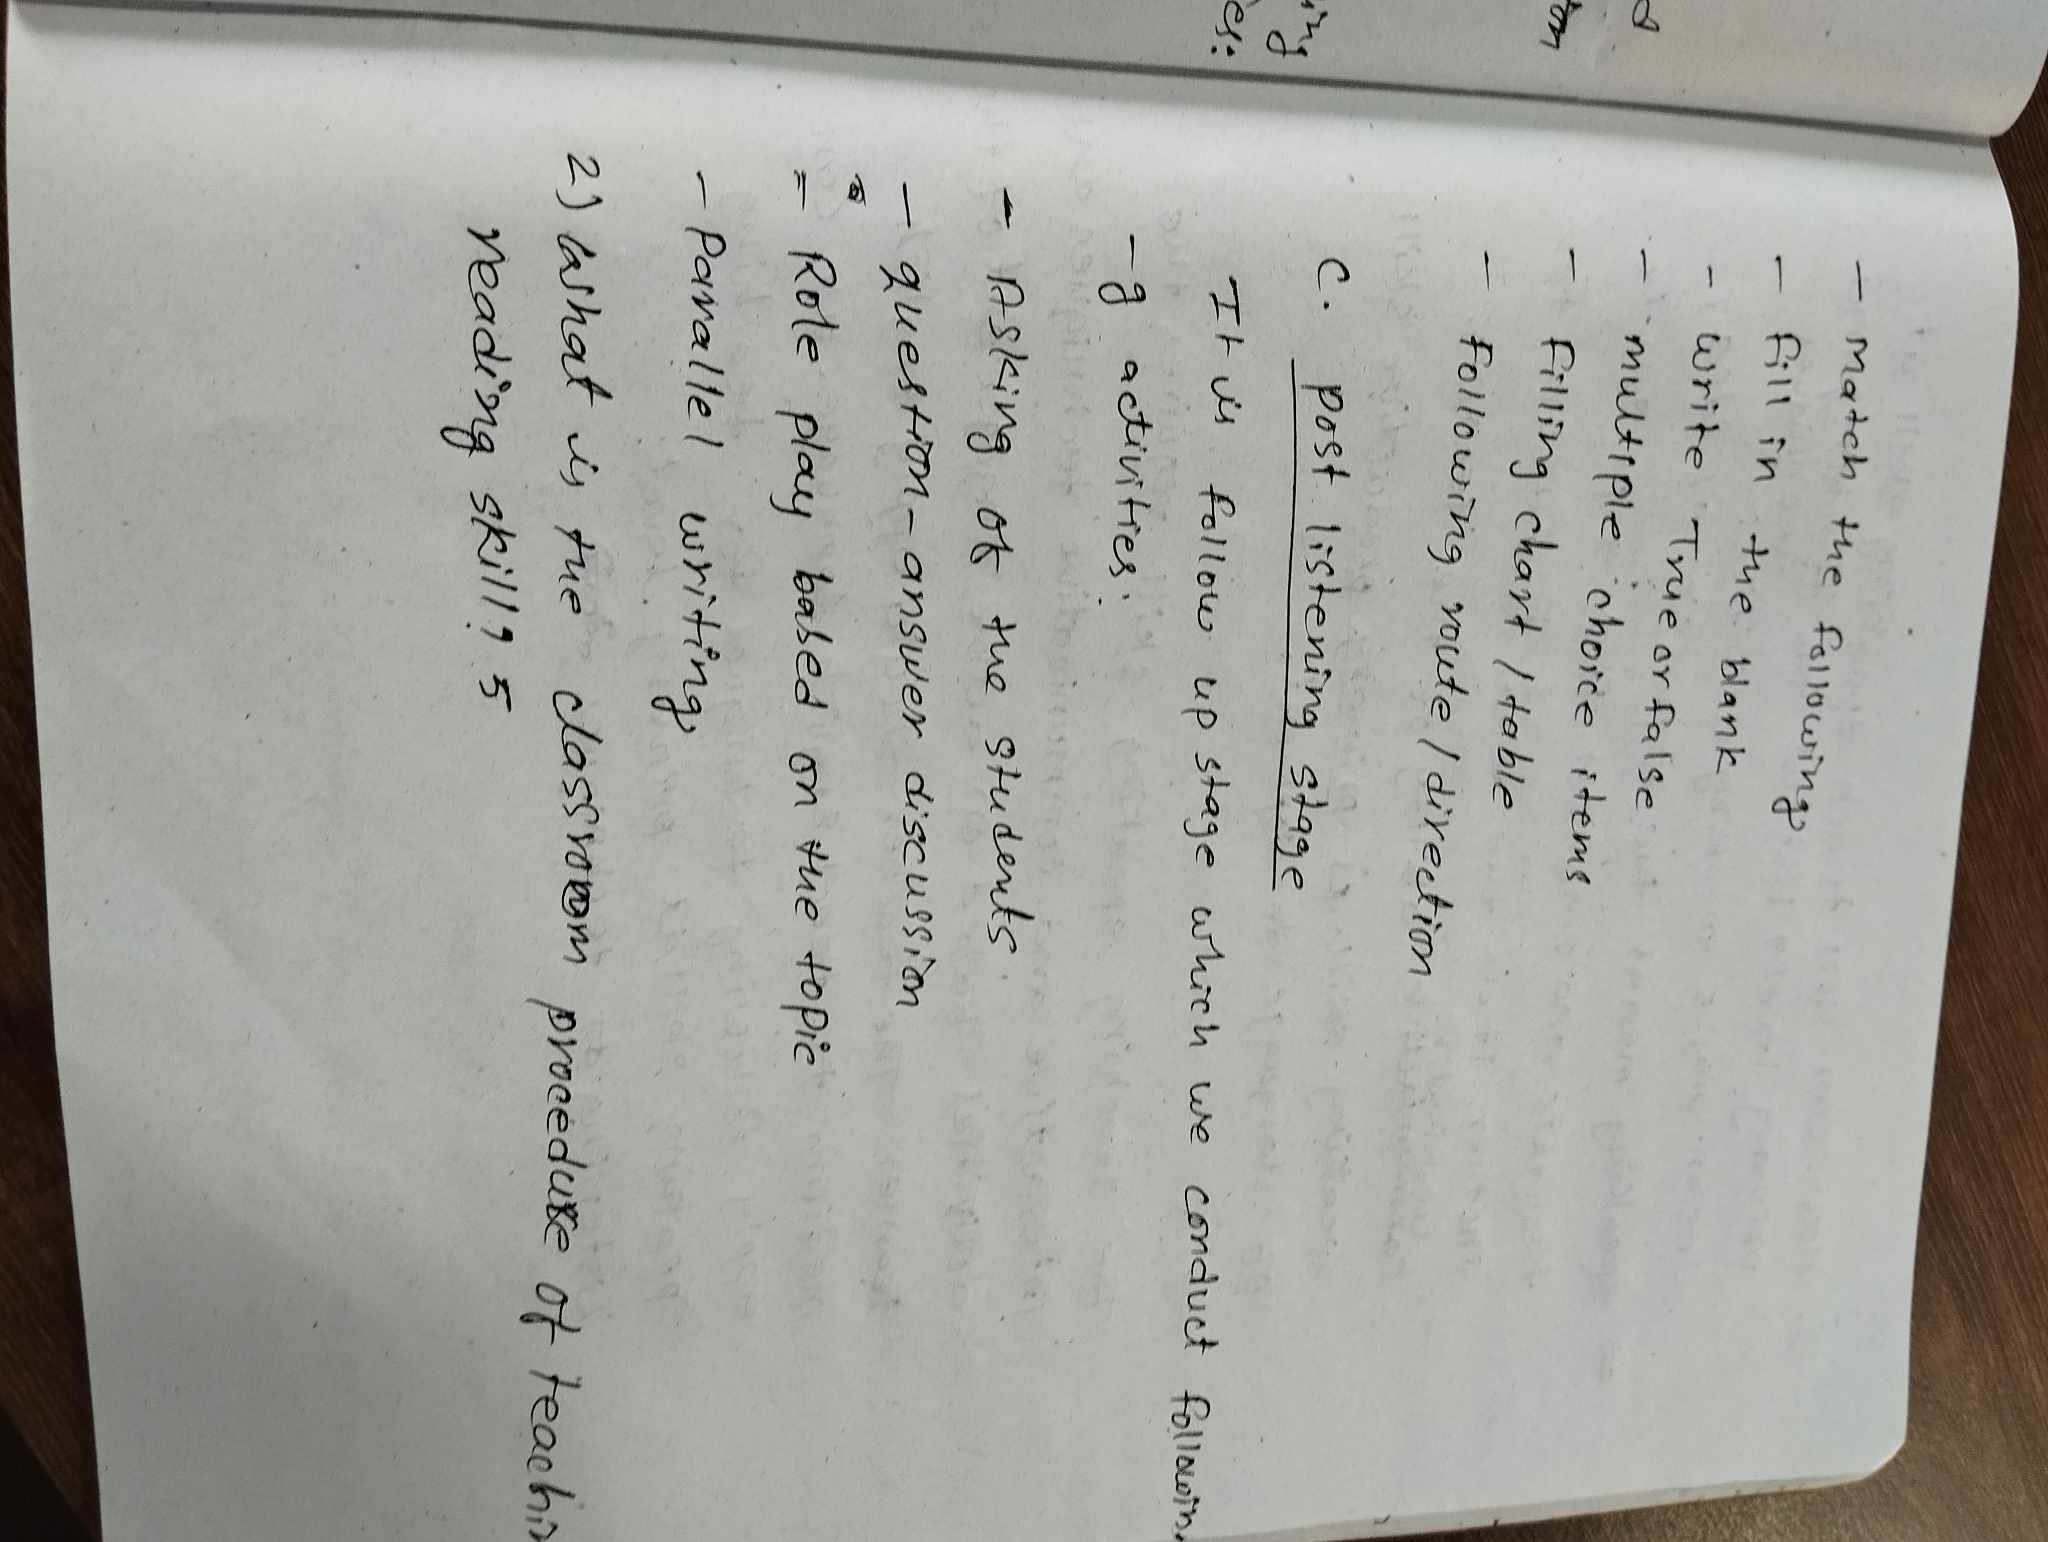 - Match the following
- Fill in the blank
- write True or false
- multiple choice items
- Filling chart / table
- Following route / direction
C. post listening stage
It is follow up stage which we conduct followin
-g activities:
- Asking of the students.
- question-answer discussion
= Role play based on the topic
- Parallel writing
2) what is the classroom procedure of teachin
reading skill? 5